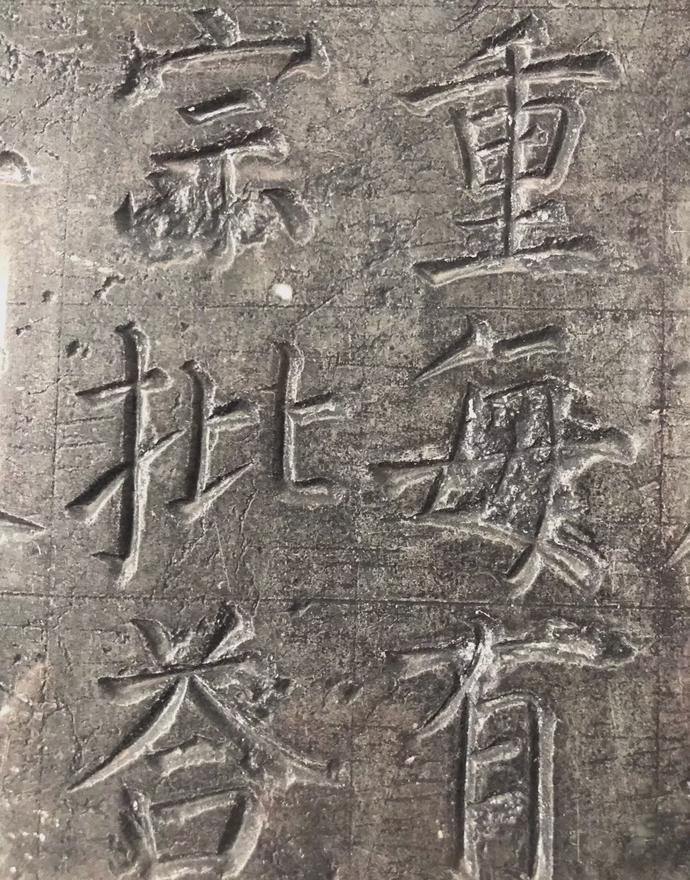 重每有
宗批答